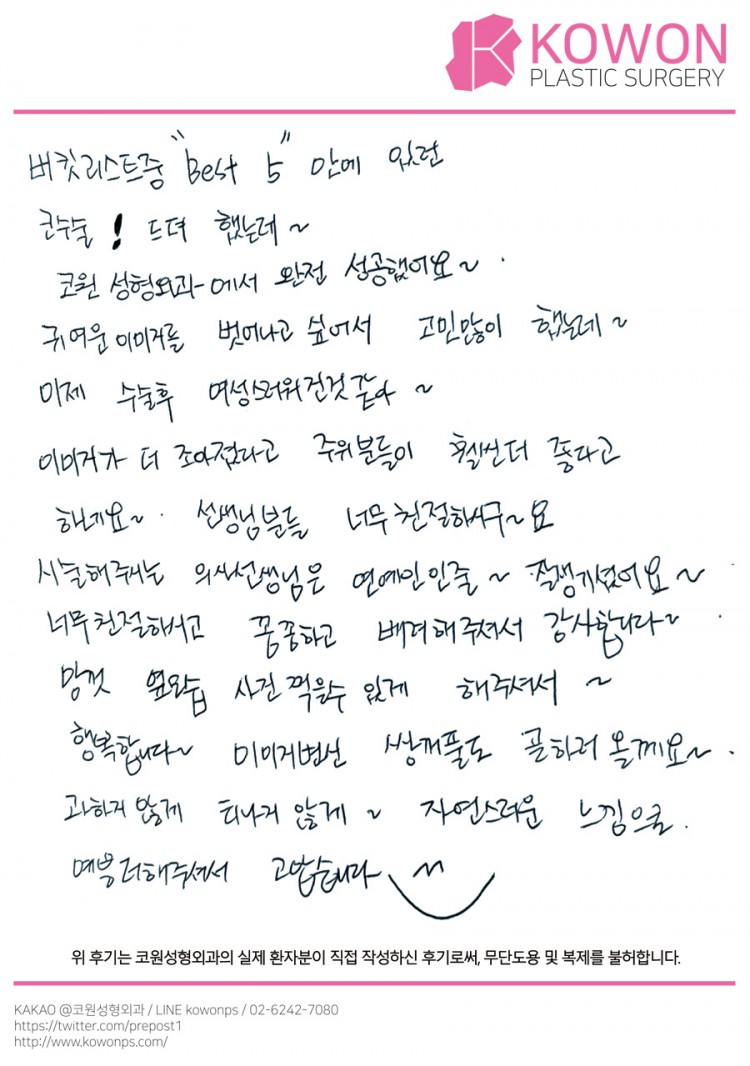 KOWON
PLASTIC SURGERY
버킷리스트중 "Best 5" 안에 있던
코수술! 드뎌 했는데~
코원 성형외과에서 완전 성공했어요~.
귀여운 이미지를 벗어나고 싶어서 고민많이 했는데~
이제 수술후 여성스러워진것같아~
이미지가 더 조아졌다고 주위분들이 훨씬더 좋다고
하네요~. 선생님분들 너무 친절하시구~요
시술해주시는 의사선생님은 연예인인줄~ 잘생기셨어요~.
너무친절하시고 꼼꼼하고 배려해주셔서 감사합니다~.
맘껏 옆모습 사진찍을수있게 해주셔서~
행복합니다~ 이미지변신 쌍꺼풀도 곧하러 올께요~.
과하지 않게 티나지 않게~ 자연스러운 느낌으로.
해주셔서 고맙습니다
위 후기는 코원성형외과의 실제 환자분이 직접 작성하신 후기로써, 무단도용 및 복제를 불허합니다.
KAKAO @코원성형외과 / LINE kowonps / 02-6242-7080
https://twitter.com/prepost1
http://www.kowonps.com/